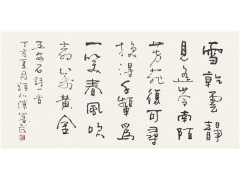 雪乾雲靜
見遙岑南陌
芳菲復可尋
換得千顰為
一笑春風吹
萬黃金
王安石詩一首
丁亥夏月